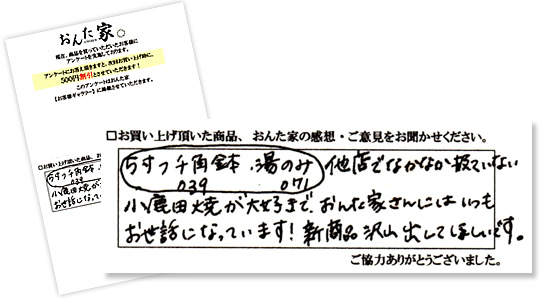 おんた家。
現在、商品を買っていただいたお客様に
アンケートを実施しております。
アンケートにお答え頂きますと、次回お買い上げ時に、
500円割引とさせていただきます！
このアンケートはおんた家
【お客様ギャラリー】に掲載させていただきます。
□お買い上げ頂いた商品、お
5すっ千角鉢
039
小鹿田焼が大
お世話になって
□お買い上げ頂いた商品、おんた家の感想・ご意見をお聞かせください。
5すっ千角鉢 湯のみ 他店でなかなか扱っていない
039 071
小鹿田焼が大好きで、おんた家さんにはいつも
お世話になっています！新商品沢山出してほしいです。
ご協力ありがとうございました。